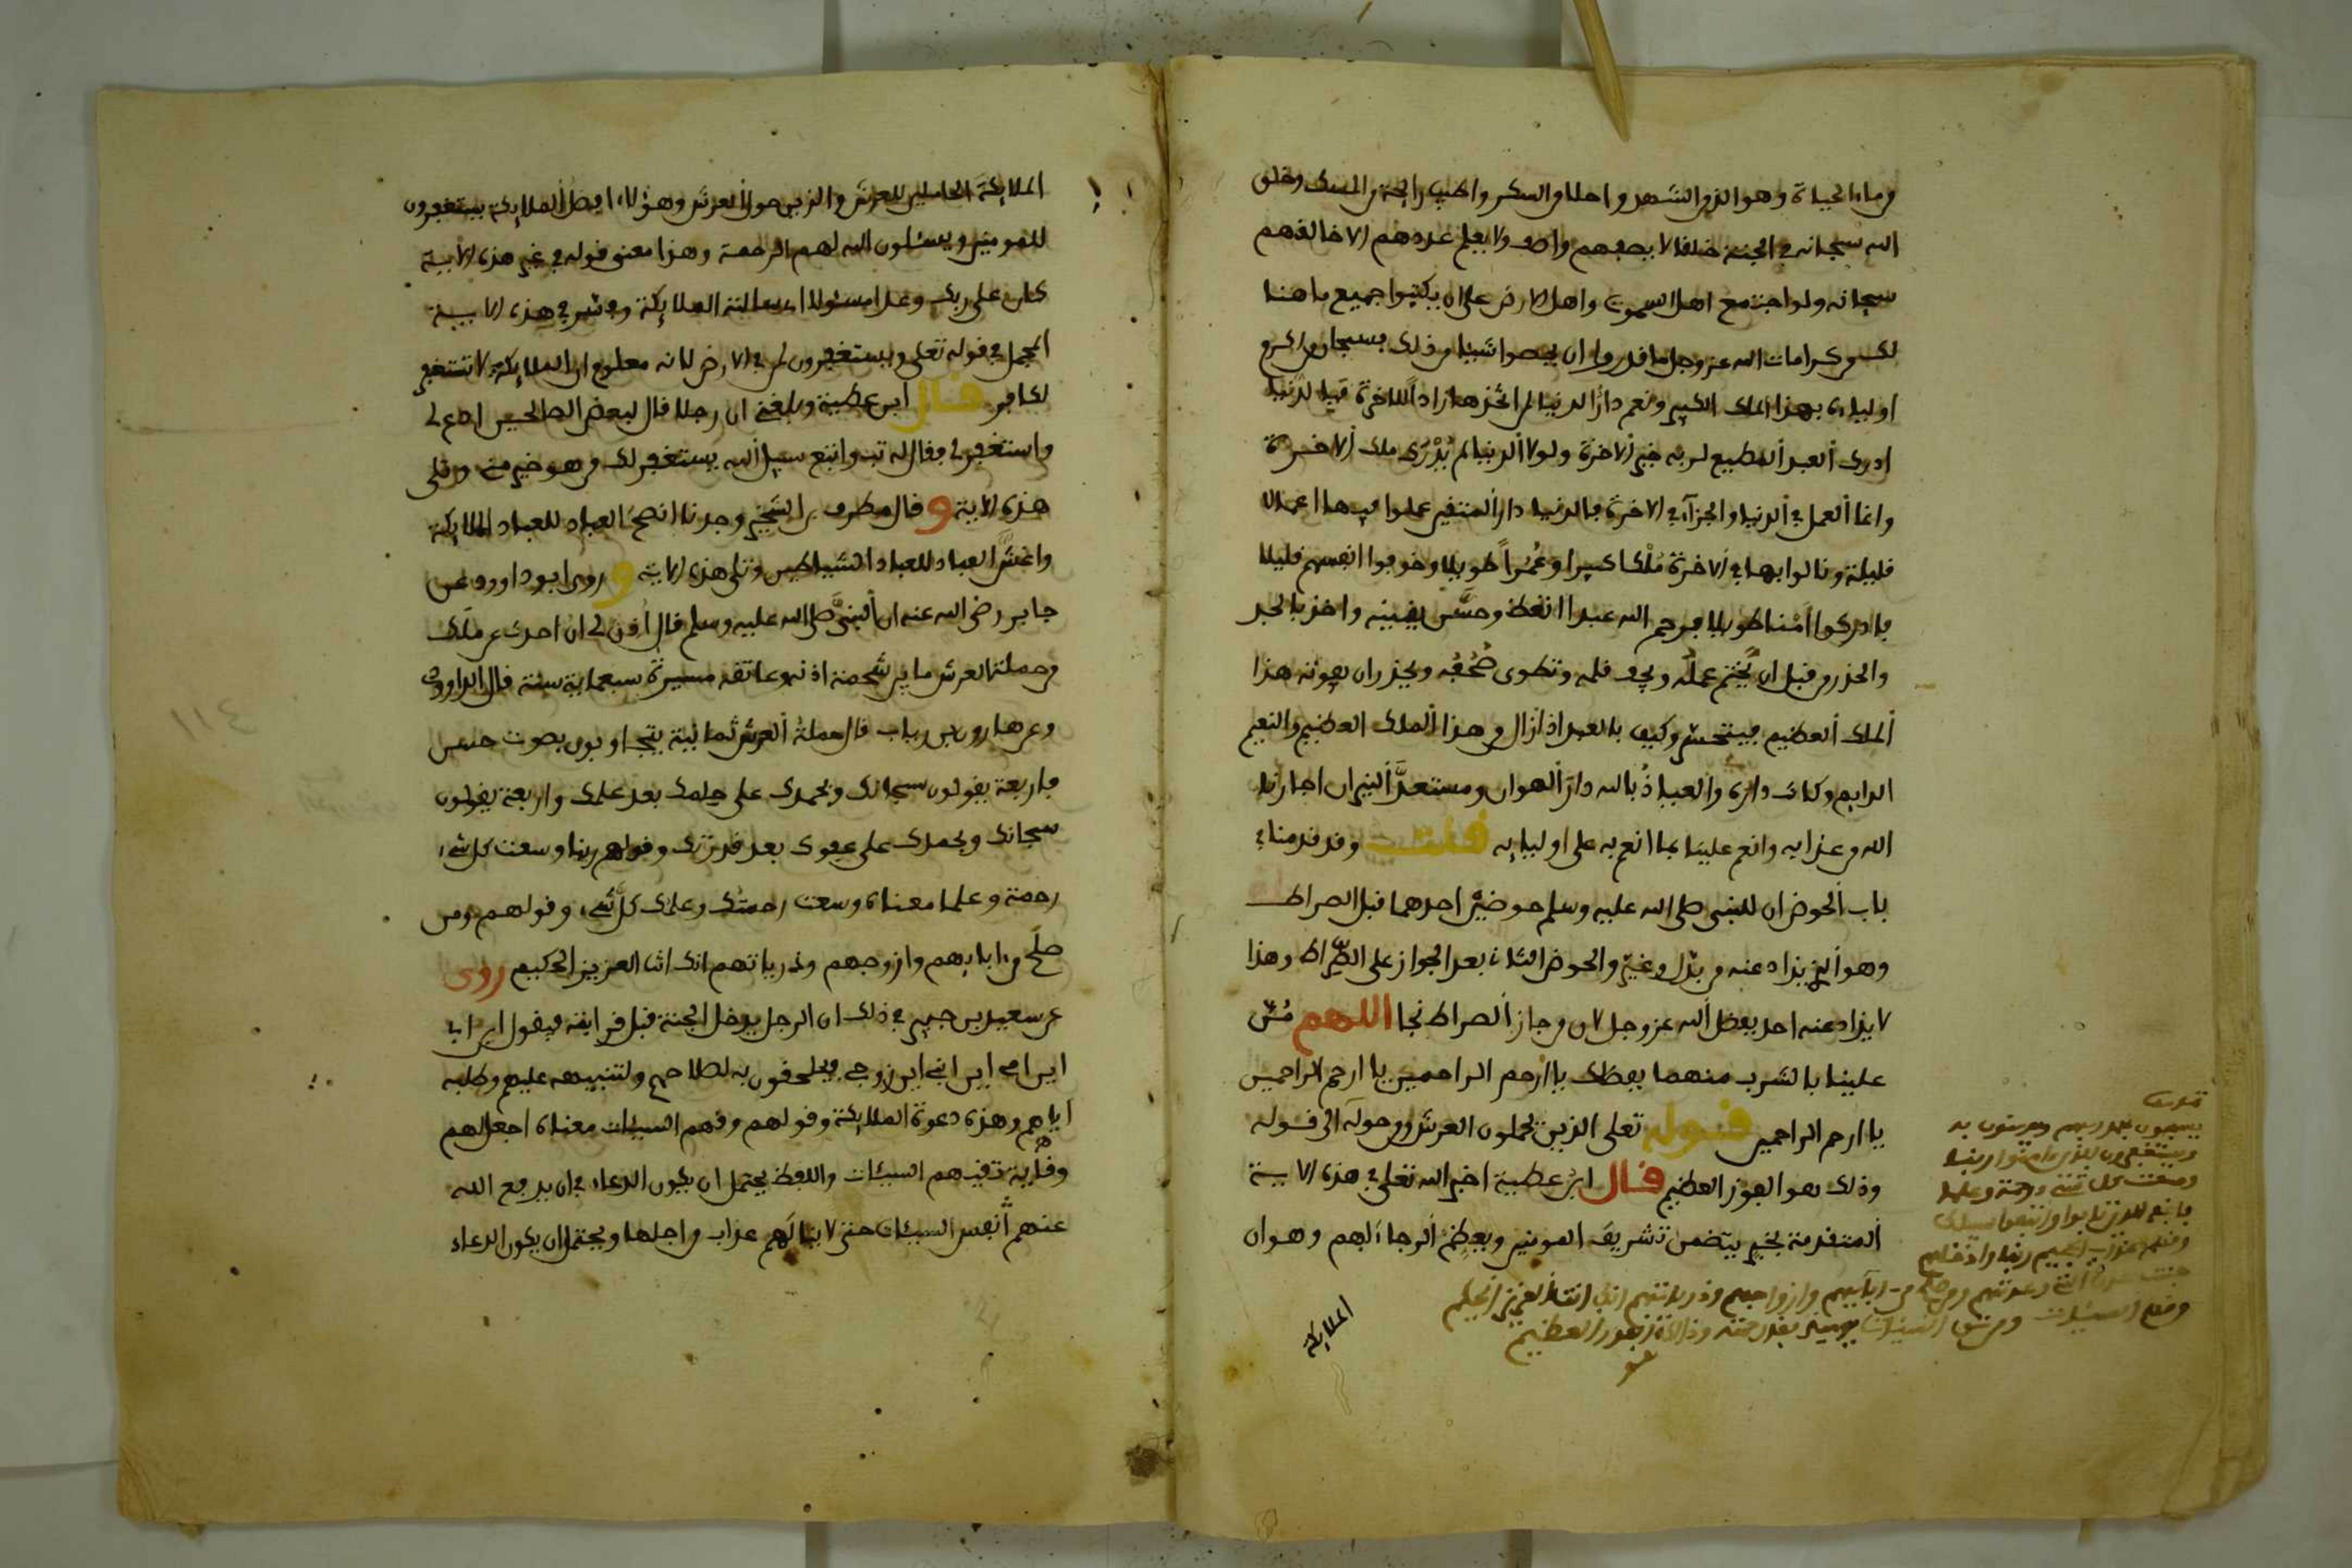 من ماء الحياة وهو الذ من الشهد واحلا من السكر واطيب رايحة من المسك وخلق
الله سبحانه في الجنة خلقا لا يصفهم واصف ولا يعلم عددهم الا خالقهم
سبحانه ولو اجتمع اهل السموات واهل الارض على ان يكتبوا جميع ما هنا
لك من كرامات الله عز وجل ما قدروا ان يحصوا شيئا من ذلك فسبحان من اكرم
اولياءه بهذا الملك الكبير ونعم دار الدنيا لمن اتخذها زادا للاخرة فبالدنيا
ادرك العبد المطيع لربه خير الاخرة ولولا الدنيا لم يدرك ملك الاخرة
وانما العمل في الدنيا والجزآء في الاخرة فالدنيا دار المتقين عملوا فيها اعمالا
قليلة ونالوا بها في الاخرة ملكا كبيرا وعمرا طويلا وخوفوا انفسهم قليلا
فادركوا امنا طويلا فرحم الله عبدا اتعظ وحسن يقينه واخذ بالجد
والحذر من قبل ان يختم عمله ويجف قلمه وتطوى صحفه ويحذر ان يفوته هذا
الملك العظيم فيتحسر وكيف بالعبد اذا زال من هذا الملك العظيم والنعيم
الدايم وكانت داره والعياذ بالله دار الهوان ومستعد النيران اجارنا
الله من عذابه وانعم علينا بما انعم به على اوليايه قلت وقد قدمنا في
باب الحوض ان للنبي صلى الله عليه وسلم حوضين احدهما قبل الصراط
وهو الذي يذاد عنه من بدل وغير والحوض الثاني بعد الجواز على الصراط وهذا
لا يذاد عنه احد بفضل الله عز وجل لان من جاز الصراط نجا اللهم من
علينا بالشرب منهما بفضلك يا ارحم الراحمين يا ارحم الراحمين
يا ارحم الراحمين قوله تعلى الذين يحملون العرش ومن حوله الى قوله
وذلك هو الفوز العظيم قال ابن عطية اخبر الله تعلى في هذه الاية
المتقدمة بخبر يتضمن تشريف المومنين ويعظم الرجا لهم وهو ان
يسبحون بحمد ربهم ويومنون به
ويستغفرون للذين ءامنوا ربنا
وسعت كل شيء رحمة وعلما
فاغفر للذين تابوا واتبعوا سبيلك
وقهم عذاب الجحيم ربنا وادخلهم
جنت عدن التي وعدتهم ومن صلح من ءابايهم وازواجهم وذرياتهم انك انت العزيز الحكيم
وقهم السيئات ومن تق السيئات يومئذ فقد رحمته وذلك هو الفوز العظيم
الملايكة
الملايكة الحاملين للعرش والذين حول العرش وهؤلاء افضل الملايكة يستغفرون
للمومنين ويسئلون الله لهم الرحمة وهذا معنى قوله في غير هذه الاية
كان على ربك وعدا مسئولا اي سالته الملايكة وفسر في هذه الاية
المجمل في قوله تعلى ويستغفرون لمن في الارض لانه معلوم ان الملايكة لا تستغفر
لكافر قال ابن عطية وبلغني ان رجلا قال لبعض الصالحين ادع لي
واستغفر لي فقال له تب واتبع سبيل الله يستغفر لك من هو خير مني وتلى
هذه الاية و قال مطرف بن الشخير وجدنا انصح العباد للعباد الملايكة
واغش العباد للعباد الشياطين وتلى هذه الاية و روى ابو داوود عن
جابر رضي الله عنه ان النبي صلى الله عليه وسلم قال اذن لي ان احدث عن ملك
من حملة العرش ما بين شحمة اذنه وعاتقه مسيرة سبعماية سنة قال الداوودي
وعن هارون بن رياب قال حملة العرش ثمانية يتجاوبون بصوت حسن
فاربعة يقولون سبحانك وبحمدك على حلمك بعد علمك واربعة يقولون
سبحانك وبحمدك على عفوك بعد قدرتك وقولهم ربنا وسعت كل شيء
رحمة وعلما معناه وسعت رحمتك وعلمك كل شيء وقولهم ومن
صلح من ءابايهم وازوجهم وذرياتهم انك انت العزيز الحكيم روى
عن سعيد بن جبير في ذلك ان الرجل يدخل الجنة قبل قرابته فيقول اين ابي
اين امي اين ابني اين زوجي فيلحقون به لصلاحهم ولتنبيهه عليهم وطلبه
اياهم وهذه دعوة الملايكة وقولهم وقهم السيئات معناه اجعل لهم
وقاية تقيهم السيئات واللفظ يحتمل ان يكون الدعاء في ان يدفع الله
عنهم انفس السيئات حتى لا ينالهم عذاب من اجلها ويحتمل ان يكون الدعاء
١١٤